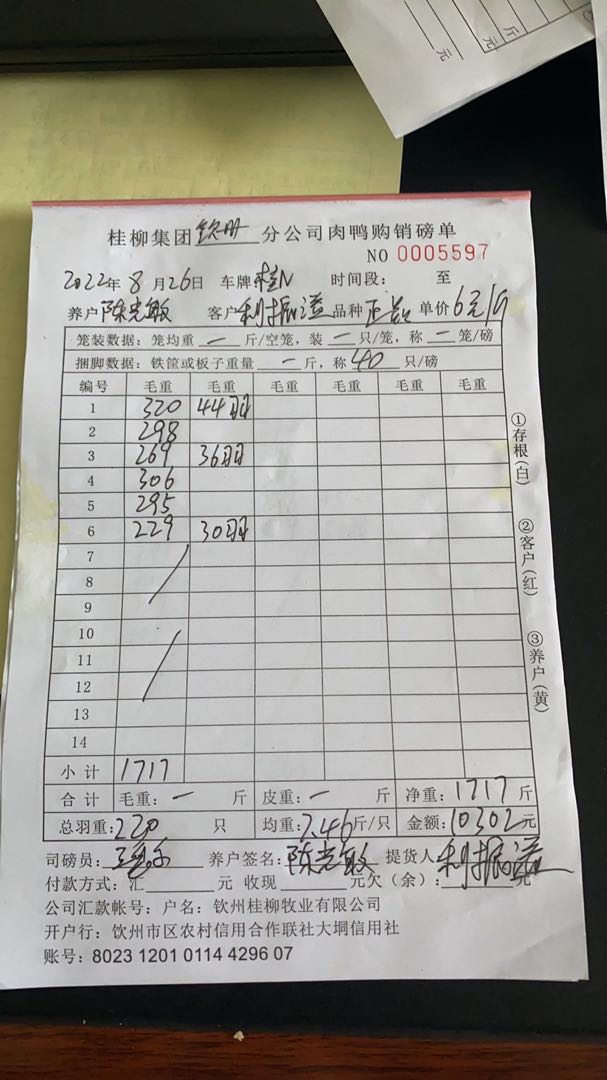 斤
元
元
桂柳集团钦州分公司肉鸭购销磅单
NO 0005597
2022年8月26日 车牌桂N 时间段: 至
养户陈光敏 客户利振溢 品种正品 单价6元/斤
笼装数据：笼均重 — 斤/空笼，装 — 只/笼，称 — 笼/磅
捆脚数据：铁筐或板子重量 — 斤，称 40 只/磅
编号 毛重 毛重 毛重 毛重 毛重 毛重
1 320 44羽
2 298
3 269 36羽
4 306
5 295
6 229 30羽
7
8
9
10
11
12
13
14
小计 1717
合计 毛重：— 斤 皮重：— 斤 净重：1717斤
总羽重：220 只 均重：7.46斤/只 金额：10302元
司磅员： 养户签名：陈光敏 提货人利振溢
付款方式：汇 元 收现 元欠（余）： 元
公司汇款帐号：户名：钦州桂柳牧业有限公司
开户行：钦州市区农村信用合作联社大垌信用社
账号：8023 1201 0114 4296 07
①存根（白）
②客户（红）
③养户（黄）